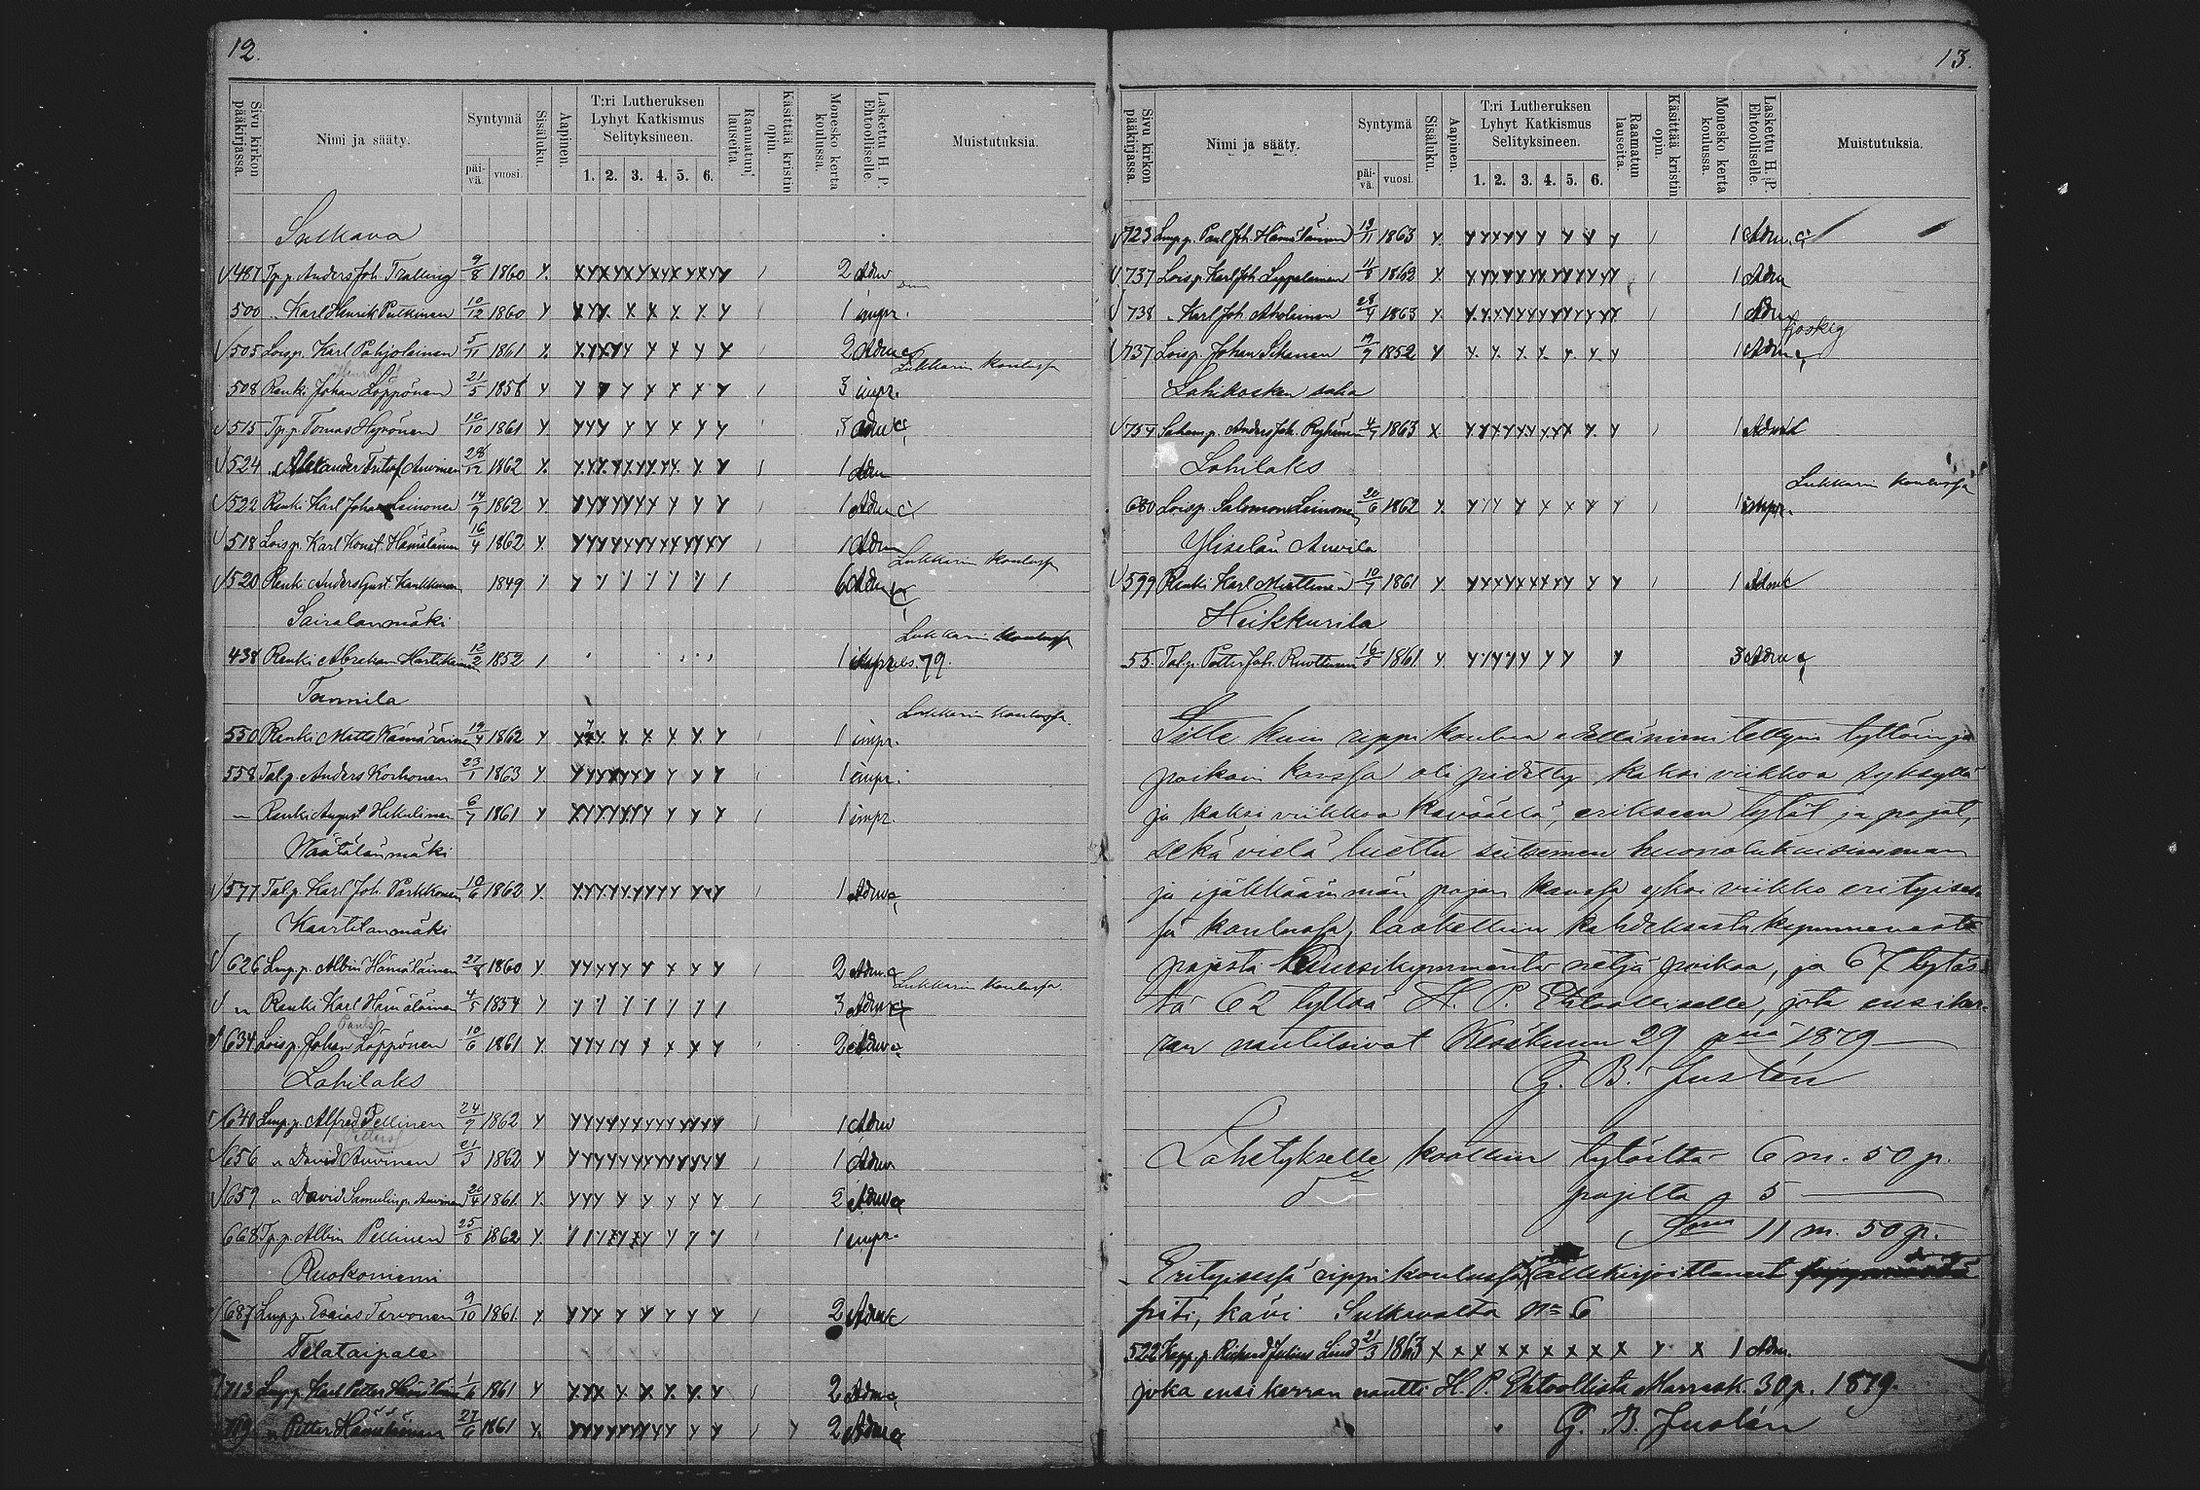 12.
Sivu kirkon pääkirjassa.
Nimi ja sääty.
Syntymä
päivä.
vuosi.
Sisäluku.
Aapinen.
T:ri Lutheruksen Lyhyt Katkismus Selityksineen.
1. 2. 3. 4. 5. 6.
Raamatun lauseita.
Käsittää kristin opin.
Monesko kerta koulussa.
Laskettu H. P. Ehtoolliselle.
Muistutuksia.
Sulkava
487 Tp.p. Anders Joh. Tralling 9/8 1860 2 Adm
500 " Karl Henrik Putkinen 10/12 1860 1 impr.
505 Loisp. Karl Pohjolainen 5/11 1861 2 Adm
Lukkarin koulussa
508 Renki Johan Löppönen 21/5 1858 3 impr.
515 Tp.p. Tomas Hyvönen 10/10 1861 3 Adm
524 " Alexander Fritof Auvinen 28/12 1862 1 Adm
522 Renki Karl Johan Leinonen 14/9 1862 1 Adm
518 Loisp. Karl Konst. Hämäläinen 16/4 1862 1 Adm
Lukkarin koulussa
520 Renki Anders Gust. Karkkunen 1849 6 Adm
Sairalanmäki
Lukkarin koulussa
438 Renki Abraham Hartikainen 12/2 1852 1 79.
Tammila
Lukkarin koulussa.
550 Renki Matts Kämäräinen 19/4 1862 1 impr.
558 Tal.p. Anders Korhonen 23/1 1863 1 impr.
— Renki August Hikulinen 6/7 1861 1 impr.
Väätälänmäki
577 Tal.p. Karl Joh. Parkkonen 10/6 1862 1 Adm
Kaartilanmäki
626 Lmp.p. Albin Hämäläinen 27/8 1860 2 Adm
Lukkarin koulussa.
" Renki Karl Hämäläinen 4/5 1854 3 Adm
634 Loisp. Johan Löppönen 10/6 1861 2 Adm
Lohilaks
640 Lmp.p. Alfred Pellinen 24/9 1862 1 Adm
656 " David Auvinen 21/3 1862 1 Adm
659 " David Samulinp. Auvinen 20/4 1861 2 Adm
668 Tp.p. Albin Pellinen 25/8 1862 1 impr.
Ruokoniemi
687 Lmp.p. Esaias Tervonen 9/10 1861 2 Adm
Telataipale
713 Lmp.p. Karl Petter Hämäläinen 1/6 1861 2 Adm
719 " Petter Hämäläinen 27/6 1861 2 Adm
13.
Sivu kirkon pääkirjassa.
Nimi ja sääty.
Syntymä
päivä.
vuosi.
Sisäluku.
Aapinen.
T:ri Lutheruksen Lyhyt Katkismus Selityksineen.
1. 2. 3. 4. 5. 6.
Raamatun lauseita.
Käsittää kristin opin.
Monesko kerta koulussa.
Laskettu H. P. Ehtoolliselle.
Muistutuksia.
723 Lmp.p. Paul Joh. Hämäläinen 19/11 1863 1 Adm
737 Loisp. Karl Joh. Leppalainen 4/8 1863 1 Adm
738 " Karl Joh. Aholainen 28/4 1863 1 Adm
737 Loisp. Johan Sikanen 19/9 1852 1 Adm
Lohikosken saha
754 Sahamp. Anders Joh. Reijkinen 4/7 1863 1 Adm
Lohilaks
Lukkarin koulussa
680 Loisp. Salomon Leinonen 20/6 1862 1 impr.
Yliselän Auvila
599 Renki Karl Miettinen 10/7 1861 1 Adm
Heikkurila
55. Tal.p. Petter Joh. Ruottinen 16/5 1861 3 Adm
Sitte kuin rippikoulua edellänimitettyin tyttöin ja
poikain kanssa oli pidetty kaksi viikkoa syksyllä
ja kaksi viikkoa keväällä, erikseen tytöt ja pojat,
sekä vielä luettu seitsemän huonolukuisimman
ja ijäkkäämmän pojan kanssa yksi viikko erityises-
sä koulussa, laskettiin kahdeksasta kymmenestä
pojasta kuusikymmentä neljä poikaa, ja 67 tytös-
tä 62 tyttöä H. P. Ehtoolliselle, jota ensiker-
ran nautitsivat Kesäkuun 29 p:nä 1879 —
G. B. Justén
Lähetykselle koottiin tytöiltä 6 m. 50 p.
d:o pojilta " 5 —
S:ma 11 m. 50 p.
Erityisessä rippikoulussa, allekirjoittanut
piti, kävi Sulkavalta N:o 6
522 Kapp.p. Richard Julius Lind 21/3 1863 1 Adm.
joka ensi kerran nautti H. P. Ehtoollista Marrask. 30 p. 1879.
G. B. Justén